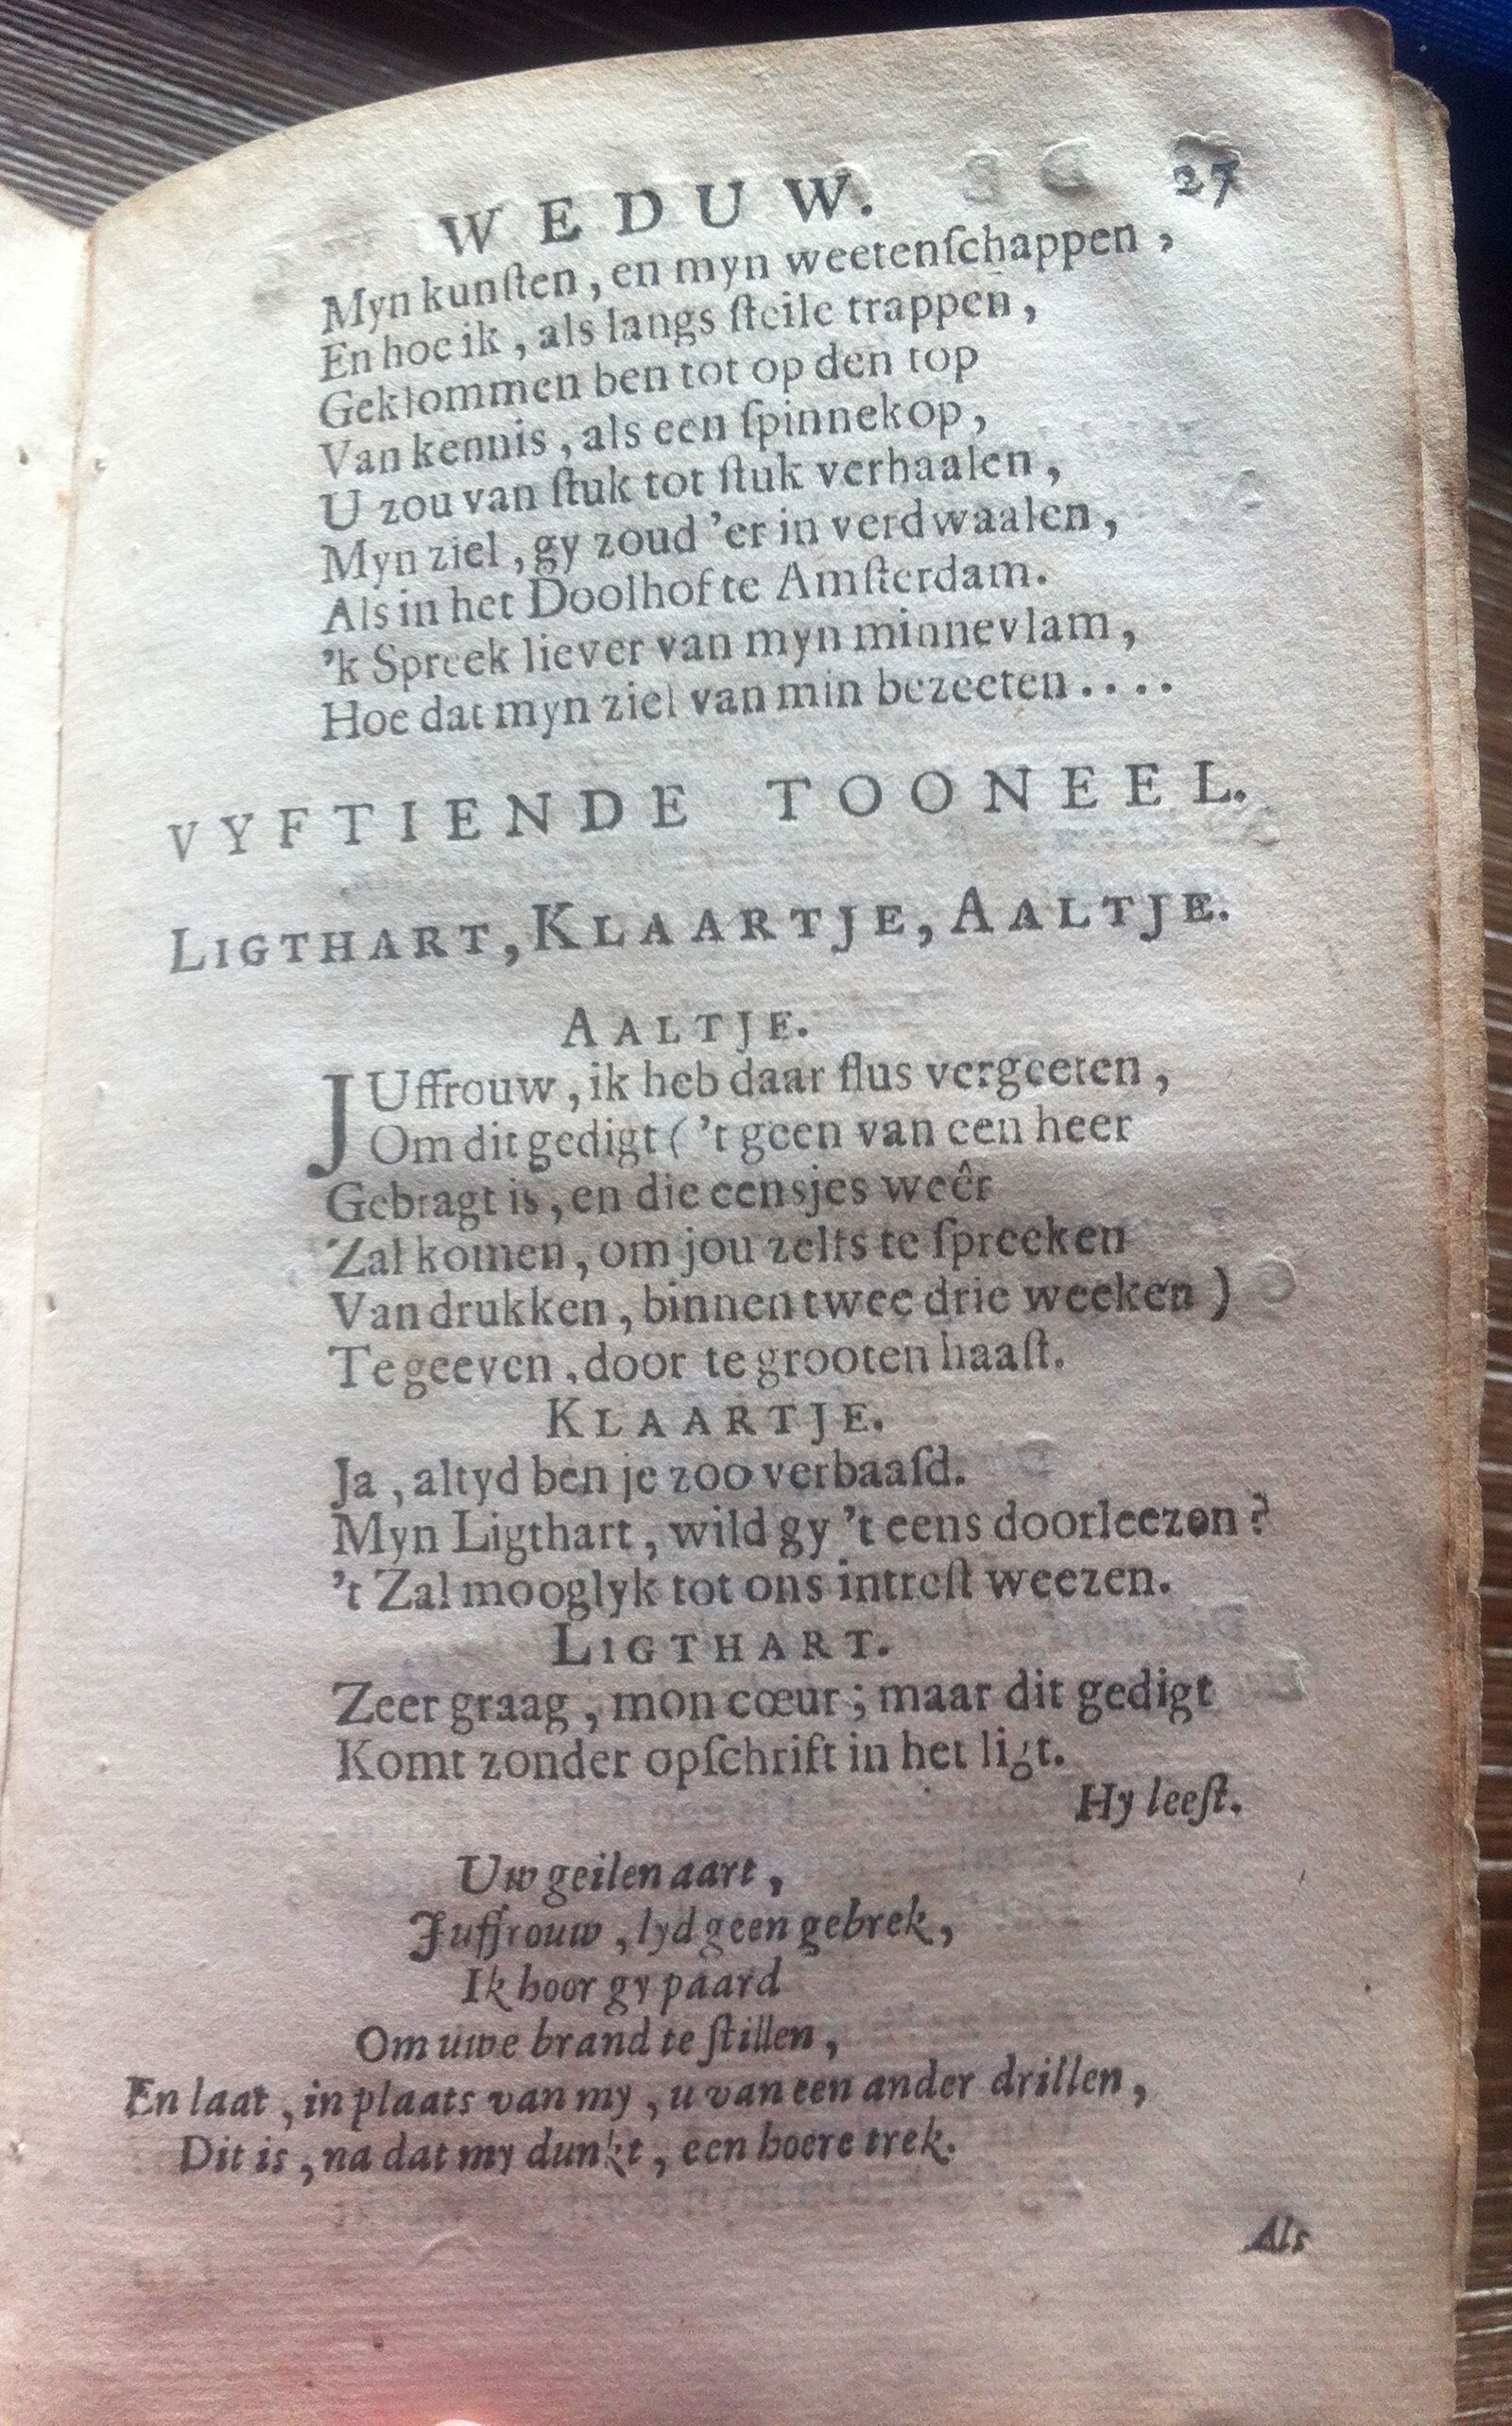 WEDUW. 27
Myn kunſten, en myn weetenſchappen,
En hoe ik, als langs ſteile trappen,
Geklommen ben tot op den top
Van kennis, als een ſpinnekop,
U zou van ſtuk tot ſtuk verhaalen,
Myn ziel, gy zoud 'er in verdwaalen,
Als in het Doolhof te Amſterdam.
'k Spreek liever van myn minnevlam,
Hoe dat myn ziel van min bezeeten....
VYFTIENDE TOONEEL.
LIGTHART, KLAARTJE, AALTJE.
AALTJE.
JUffrouw, ik heb daar flus vergeeten,
Om dit gedigt ('t geen van een heer
Gebragt is, en die eensjes weêr
Zal komen, om jou zelfs te ſpreeken
Van drukken, binnen twee drie weeken)
Te geeven, door te grooten haaſt.
KLAARTJE.
Ja, altyd ben je zoo verbaaſd.
Myn Ligthart, wild gy 't eens doorleezen?
't Zal mooglyk tot ons intreſt weezen.
LIGTHART.
Zeer graag, mon cœur; maar dit gedigt
Komt zonder opſchrift in het ligt.
Hy leeſt.
Uw geilen aart,
Juffrouw, lyd geen gebrek,
Ik hoor gy paard
Om uwe brand te ſtillen,
En laat, in plaats van my, u van een ander drillen,
Dit is, na dat my dunkt, een hoere trek.
Als